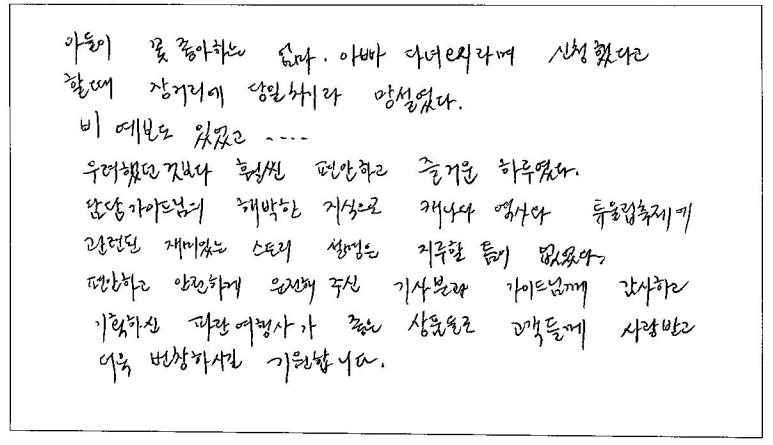 아들이 꽃 좋아하는 엄마. 아빠 다녀오시라며 신청했다고
할때 장거리에 당일치기라 망설였다.
비 예보도 있었고 ....
우려했던것보다 훨씬 편안하고 즐거운 하루였다.
담당가이드님의 해박한 지식으로 캐나다 역사와 튜울립축제에
관련된 재미있는 스토리 설명은 지루할 틈이 없었다.
편안하고 안전하게 운전해 주신 기사분과 가이드님께 감사하고
기획하신 파란여행사가 좋은 상품들로 고객들께 사랑받고
더욱 번창하시길 기원합니다.